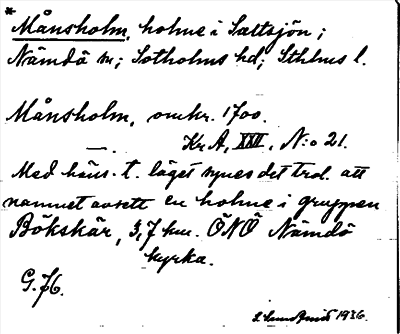 * Månsholm, holme i Saltsjön;
Nämdö sn; Sotholms hd; Sthlms l.
Månsholm, omkr. 1700.
—. Kr A, XXII, N:o 21.
Med häns. t. läget synes det trol. att
namnet avsett en holme i gruppen
Bökskär, 3,7 km. ÖNÖ Nämdö
kyrka.
G. 76.
1936.